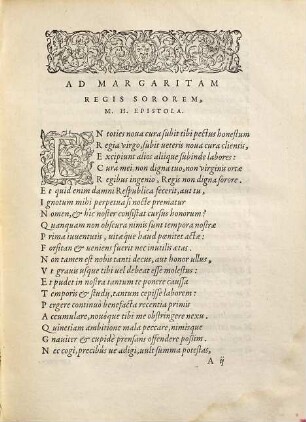 AD MARGARITAM
REGIS SOROREM,
M. H. EPISTOLA.
EN toties noua cura subit tibi pectus honestum
Regia virgo, subit veteris noua cura clientis,
Excipiunt alios aliique subinde labores:
Cura mei non digna tuo, non virginis ortæ
Regibus ingenio, Regis non digna sorore.
Et quid enim damni Respublica fecerit, aut tu,
Ignotum mihi perpetua si nocte premiatur
Nomen, & hic noster consistat cursus honorum?
Quanquam non obscura minis sunt tempora nostræ
Prima iuuentutis, vitæque haud pœnitet actæ:
Forsitan & ueniens fuerit nec inutilis ætas.
Non tamen est nobis tanti decus, aut honor ullus,
Vt grauis usque tibi uel debeat esse molestus:
Et pudet in nostra tantum te ponere caussa
Temporis & study, tantum cepisse laborem:
Pergere continuò benefacta recentia primis
Accumulare, nouóque tibi me obstringere nexu.
Quinetiam ambitione mala peccare, nimisque
Gnauiter & cupidè prensans offendere possim.
Nec cogi, precibus ue adigi, uult summa potestas,
A ij